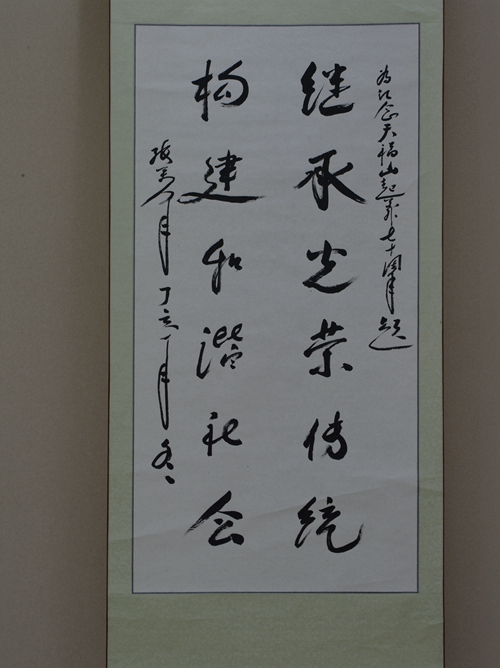 为纪念天福山起义七十周年题
继承光荣传统
构建和谐社会
丁亥年冬